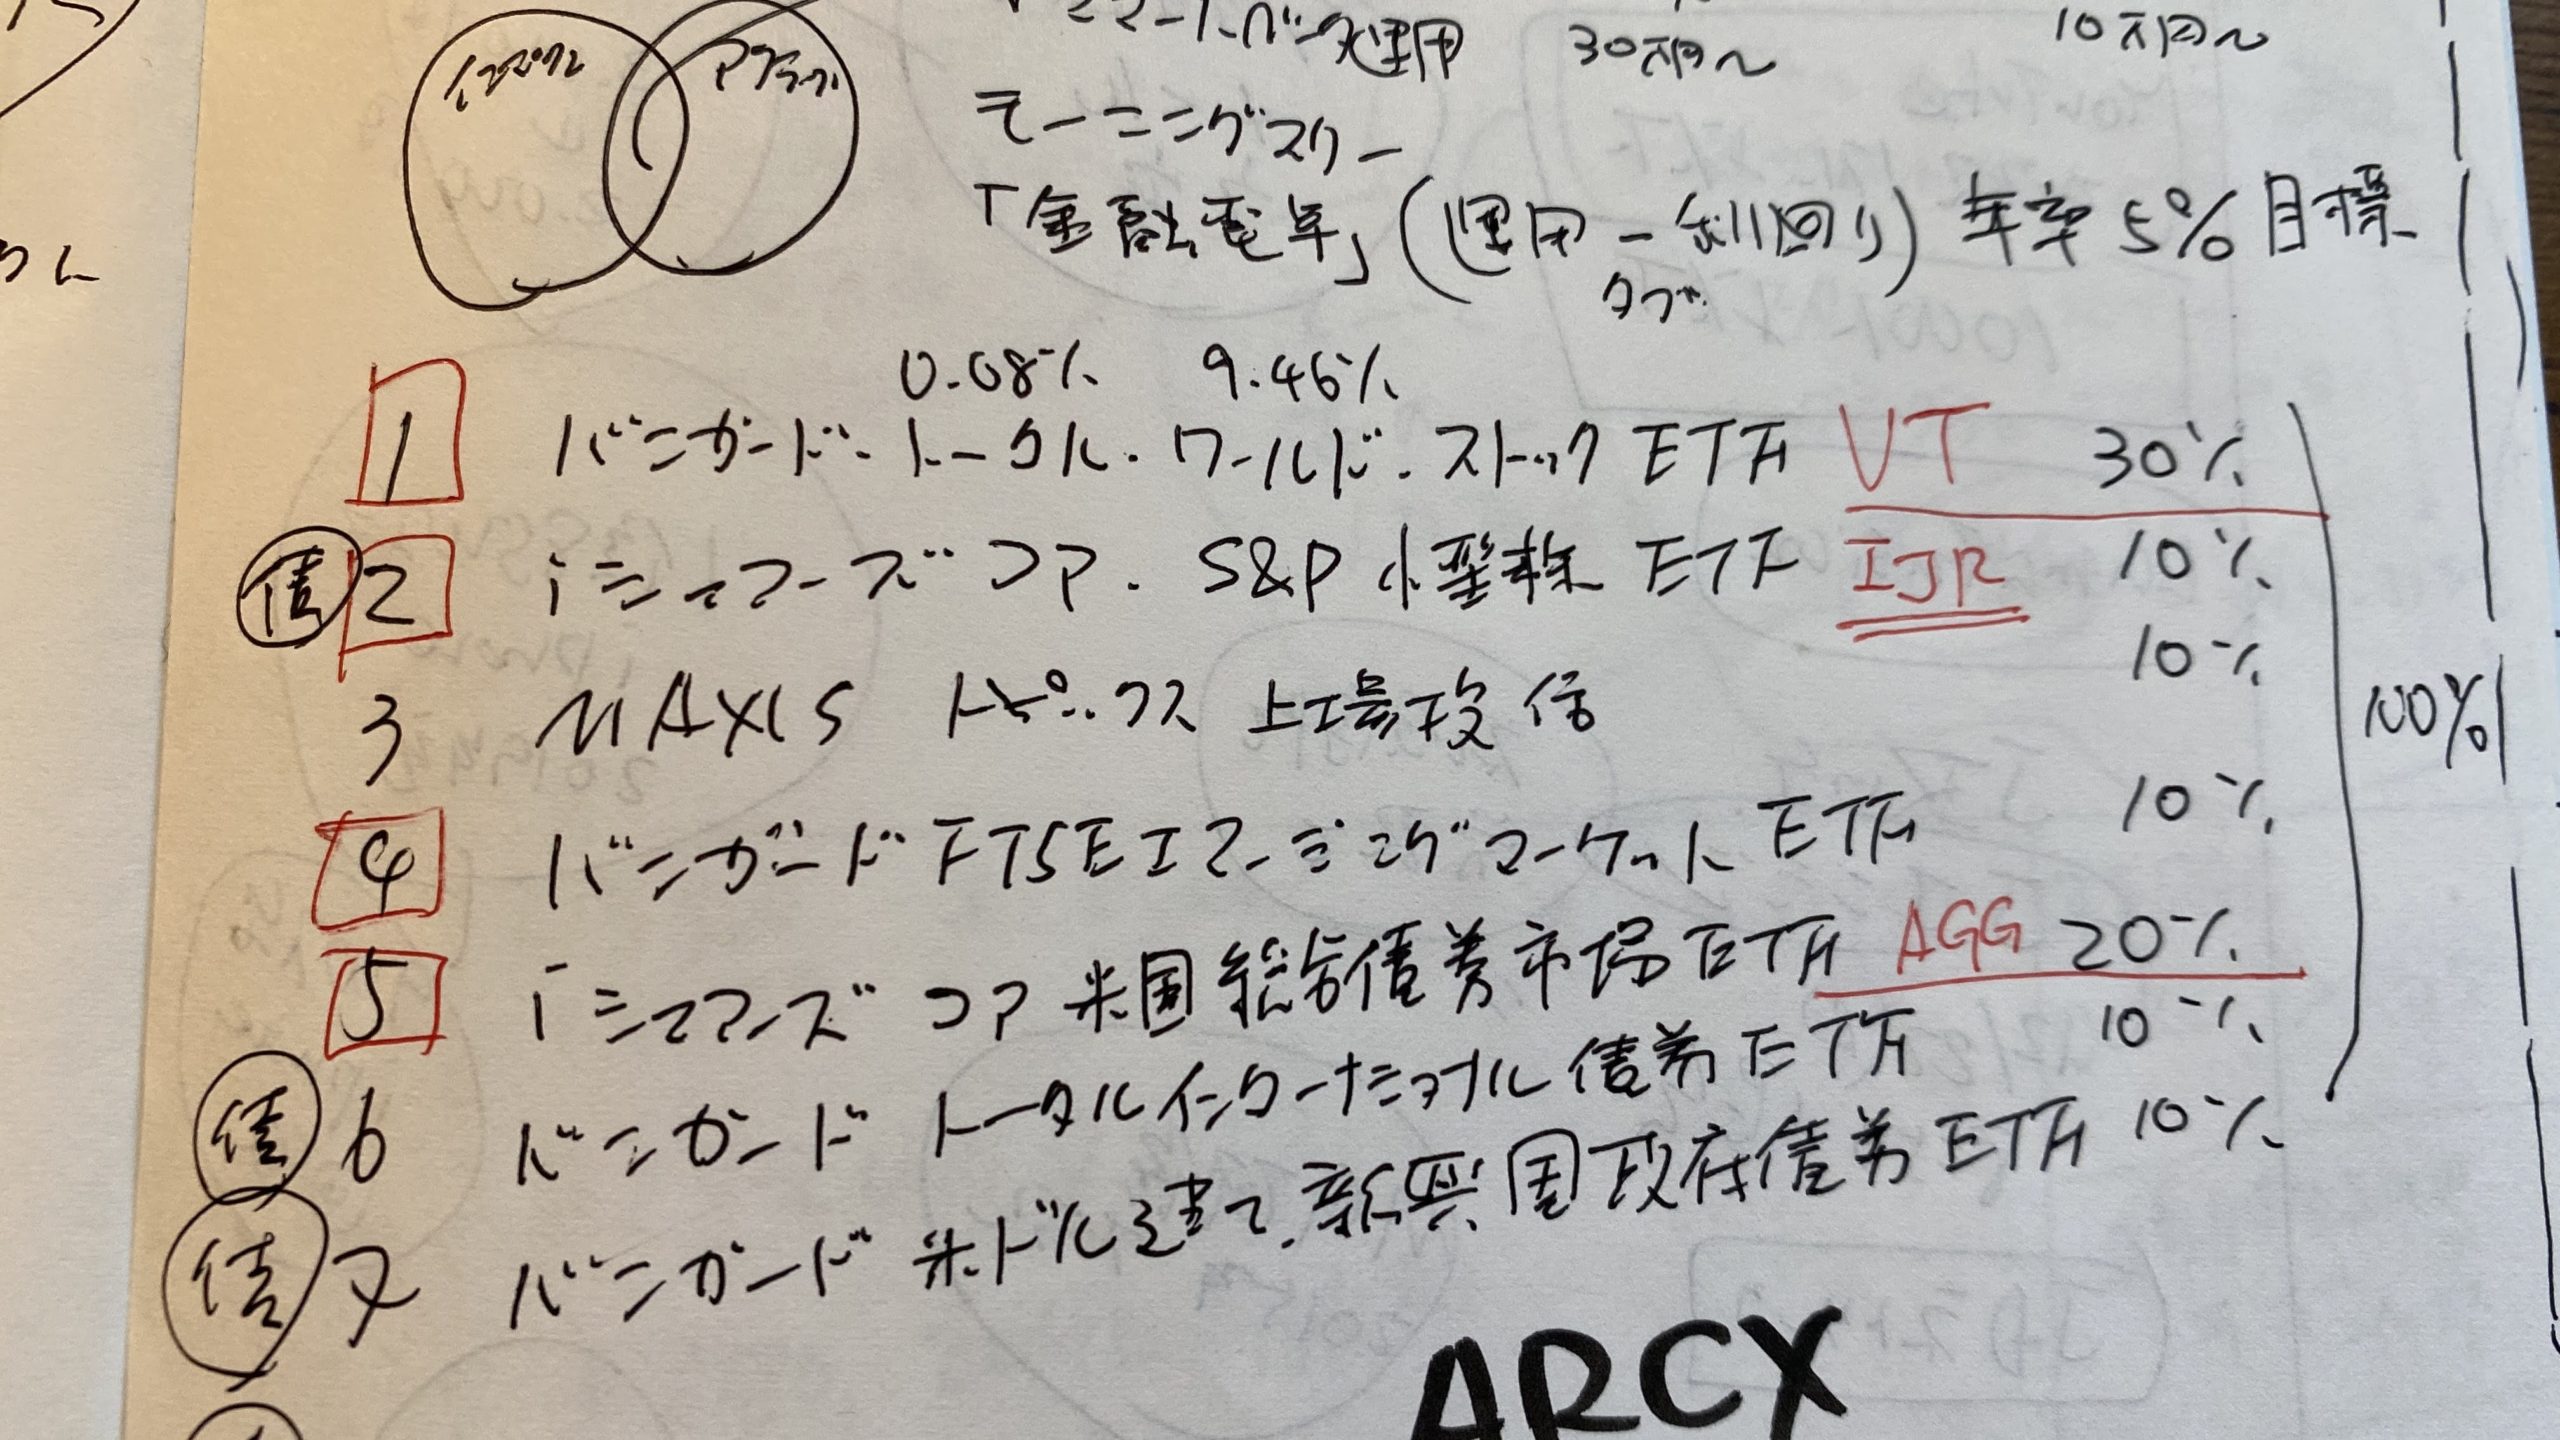 運用 30万円〜 10万円〜
モーニングスター
「金融電卓」(運用-利回り) 年率5%目標
タブ
0.08% 9.46%
1 バンガード・トータル・ワールド・ストックETF VT 30%
債 2 iシェアーズコア・S&P小型株ETF IJR 10%
10%
3 MAXIS トピックス上場投信
100%
10%
4 バンガードFTSEエマージングマーケットETF
5 iシェアーズ コア 米国総合債券市場ETF AGG 20%
10%
債 6 バンガード トータルインターナショナル債券ETF
債 7 バンガード 米ドル建て・新興国政府債券ETF 10%
ARCX